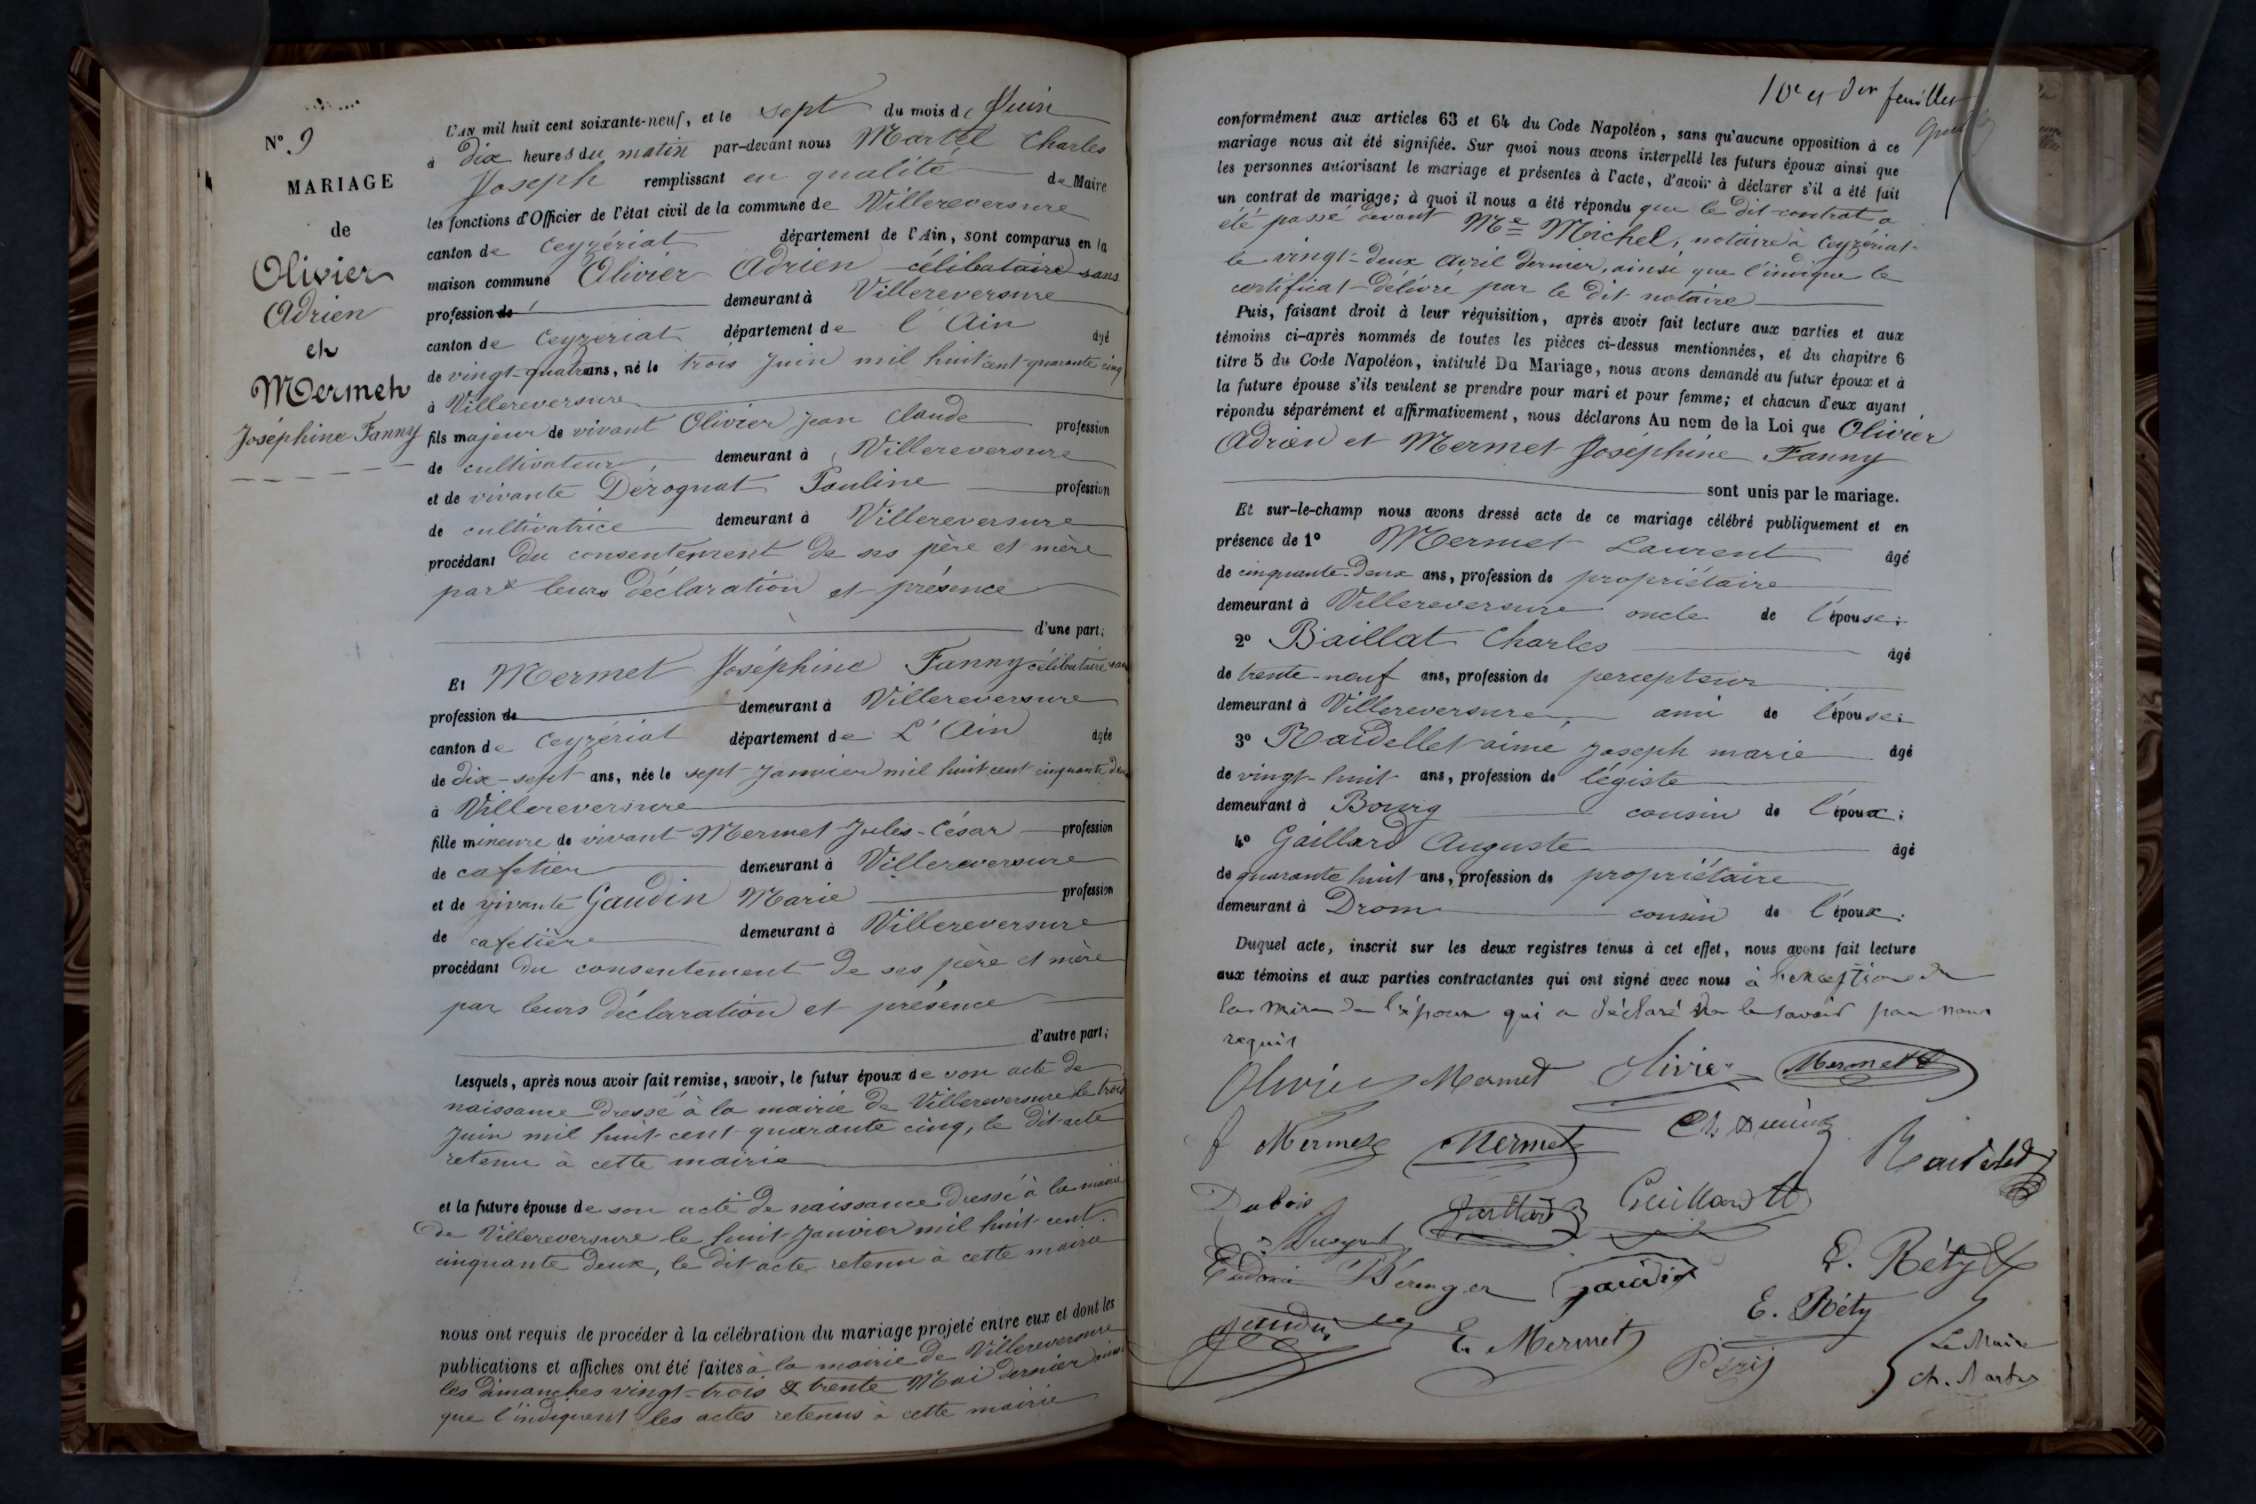 N° 9
MARIAGE
de
Olivier
Adrien
et
Mermet
Joséphine Fanny
L'AN mil huit cent soixante-neuf, et le sept du mois de Juin
à dix heures du matin par-devant nous Martel Charles
Joseph remplissant en qualité de Maire
les fonctions d'Officier de l'état civil de la commune de Villereversure
canton de Ceyzériat département de l'Ain, sont comparus en la
maison commune Olivier Adrien célibataire sans
profession de demeurant à Villereversure
canton de Ceyzeriat département de l'Ain âgé
de vingt-quatre ans, né le trois Juin mil huit cent quarante cinq
à Villereversure
fils majeur de vivant Olivier Jean Claude profession
de cultivateur demeurant à Villereversure
et de vivante Dérognat Pauline profession
de cultivatrice demeurant à Villereversure
procédant du consentement de ses père et mère
par leurs déclaration et présence
d'une part;
Et Mermet Joséphine Fanny célibataire sans
profession de demeurant à Villereversure
canton de Ceyzériat département de L'Ain âgée
de dix-sept ans, née le sept Janvier mil huit cent cinquante deux
à Villereversure
fille mineure de vivant Mermet Jules-César profession
de cafetier demeurant à Villereversure
et de vivante Gaudin Marie profession
de cafetière demeurant à Villereversure
procédant du consentement de ses père et mère
par leurs déclaration et présence
d'autre part;
Lesquels, après nous avoir fait remise, savoir, le futur époux de son acte de
naissance dressé à la mairie de Villereversure le trois
Juin mil huit cent quarante cinq, le dit acte
retenu à cette mairie
et la future épouse de son acte de naissance dressé à la mairie
de Villereversure le huit Janvier mil huit cent
cinquante deux, le dit acte retenu à cette mairie
nous ont requis de procéder à la célébration du mariage projeté entre eux et dont les
publications et affiches ont été faites à la mairie de Villereversure
les dimanches vingt-trois & trente Mai dernier ainsi
que l'indiquent les actes retenus à cette mairie
10e et der feuillet
conformément aux articles 63 et 64 du Code Napoléon, sans qu'aucune opposition à ce
mariage nous ait été signifiée. Sur quoi nous avons interpellé les futurs époux ainsi que
les personnes autorisant le mariage et présentes à l'acte, d'avoir à déclarer s'il a été fait
un contrat de mariage; à quoi il nous a été répondu que le dit contrat a
été passé devant Me Michel, notaire à Ceyzériat
le vingt-deux Avril dernier, ainsi que l'indique le
certificat délivré par le dit notaire
Puis, faisant droit à leur réquisition, après avoir fait lecture aux parties et aux
témoins ci-après nommés de toutes les pièces ci-dessus mentionnées, et du chapitre 6
titre 5 du Code Napoléon, intitulé Du Mariage, nous avons demandé au futur époux et à
la future épouse s'ils veulent se prendre pour mari et pour femme; et chacun d'eux ayant
répondu séparément et affirmativement, nous déclarons Au nom de la Loi que Olivier
Adrien et Mermet Joséphine Fanny
sont unis par le mariage.
Et sur-le-champ nous avons dressé acte de ce mariage célébré publiquement et en
présence de 1° Mermet Laurent âgé
de cinquante-deux ans, profession de propriétaire
demeurant à Villereversure oncle de l'épouse;
2° Baillat Charles âgé
de trente-neuf ans, profession de percepteur
demeurant à Villereversure, ami de l'épouse;
3° Raidellet aimé Joseph marie âgé
de vingt-huit ans, profession de légiste
demeurant à Bourg cousin de l'époux;
4° Gaillard Auguste âgé
de quarante huit ans, profession de propriétaire
demeurant à Drom cousin de l'époux.
Duquel acte, inscrit sur les deux registres tenus à cet effet, nous avons fait lecture
aux témoins et aux parties contractantes qui ont signé avec nous à l'exception de
la mère de l'époux qui a déclaré ne le savoir par nous
requis
Olivier Mermet Olivier Mermet
J Mermet Mermet Raidellet
Dubois Gaillard
Béringer Gaudin E. Réty
Gaudin E. Mermet E. Réty
Le Maire
Ch. Martel